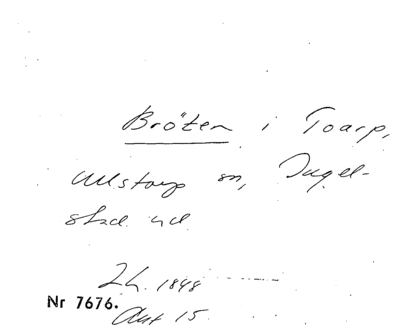 Bröten i Toarp,
Ullstorp sn, Ingel-
stad hd.
Lh. 1848
Nr 7676.
Akt 15.